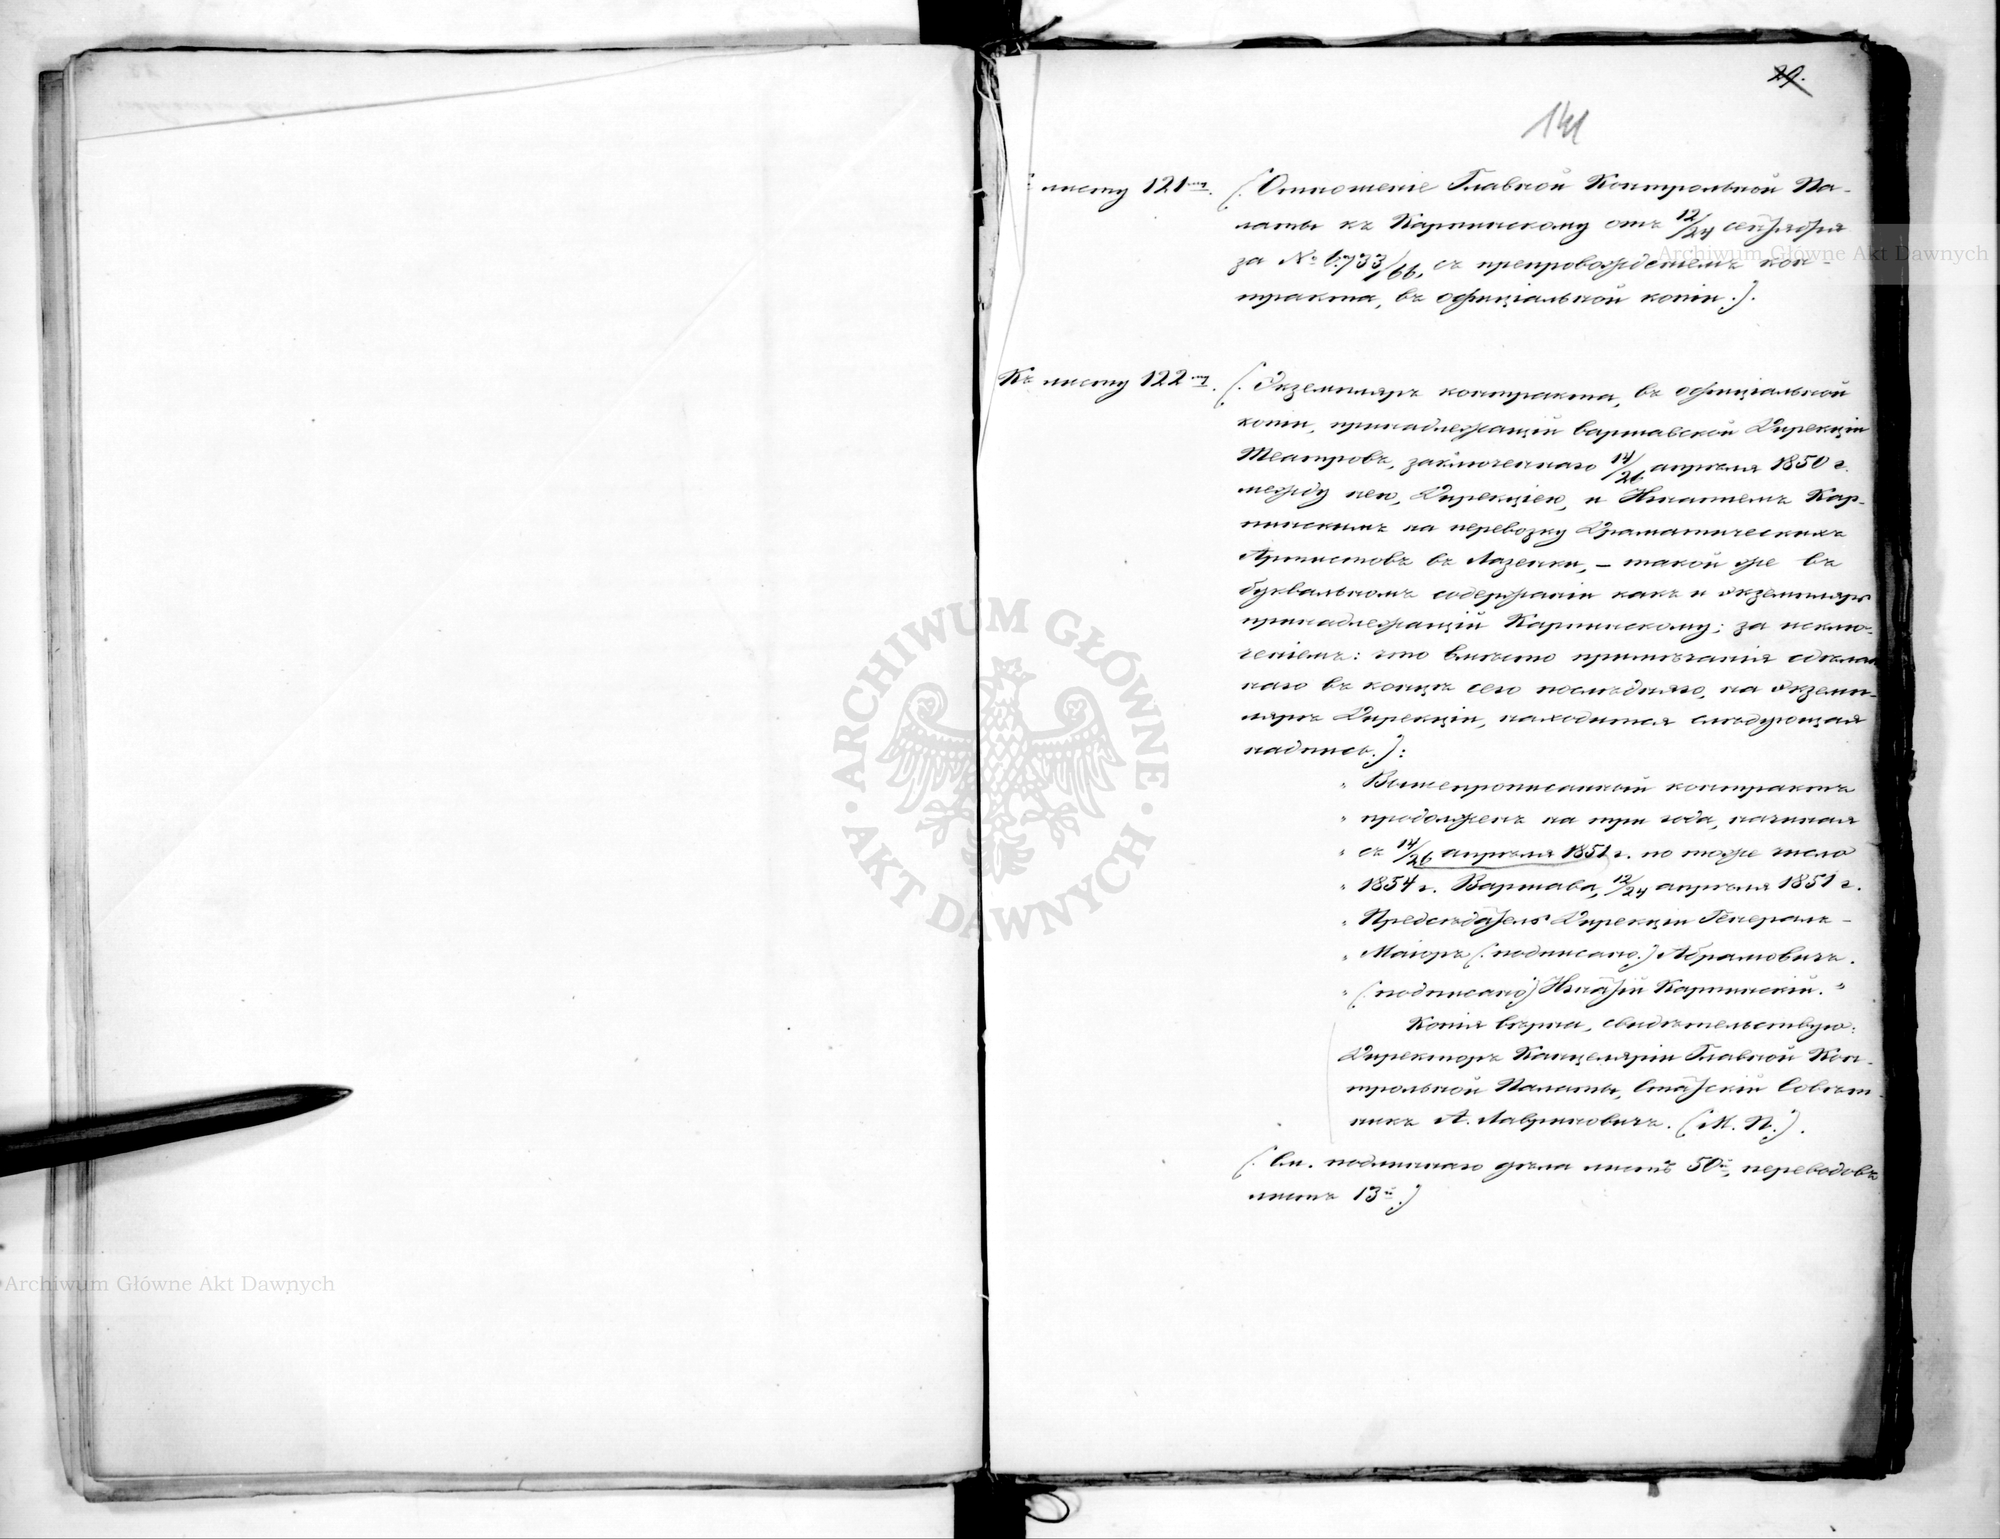 29.
141
листу 121му.
(. Отношеніе Главной Контрольной Па-
латы къ Карпинскому отъ 12/24 сентября
за № 6,733/66, съ препровожденіемъ кон-
тракта, въ офиціальной копіи.).
Къ листу 122му.
(. Экземпляръ контракта, въ офиціальной
копіи, принадлежащій Варшавской Дирекціи
Театровъ, заключеннаго 14/26 апрѣля 1850 г.
между нею, Дирекціею, и Игнатіемъ Кар-
пинскимъ на перевозку Драматическихъ
Артистовъ въ Лазенки, – такой же въ
буквальномъ содержаніи какъ и экземпляръ
принадлежащій Карпинскому; за исклю-
ченіемъ: что вмѣсто примѣчанія сдѣлан
наго въ концѣ сего послѣдняго, на экземп-
лярѣ Дирекціи, находится слѣдующая
надпись.):
" Вышепрописанный контрактъ
" продолженъ на три года, начиная
" съ 14/26 апрѣля 1851 г. по тоже число
" 1854 г. Варшава, 12/24 апрѣля 1851 г.
" Предсѣдатель Дирекціи Генералъ-
" Маіоръ (. подписано.) Абрамовичъ.
" (. подписано) Игнатій Карпинскій. "
Копія вѣрна, свидѣтельствую:
Директоръ Канцеляріи Главной Кон-
трольной Палаты, Статскій Совѣт-
никъ А. Лавриновичъ. (М. П.).
(. См. подлиннаго дѣла листъ 50й, переводовъ
листъ 13й.)
ARCHIWUM GŁÓWNE
AKT DAWNYCH
Archiwum Główne Akt Dawnych
Archiwum Główne Akt Dawnych